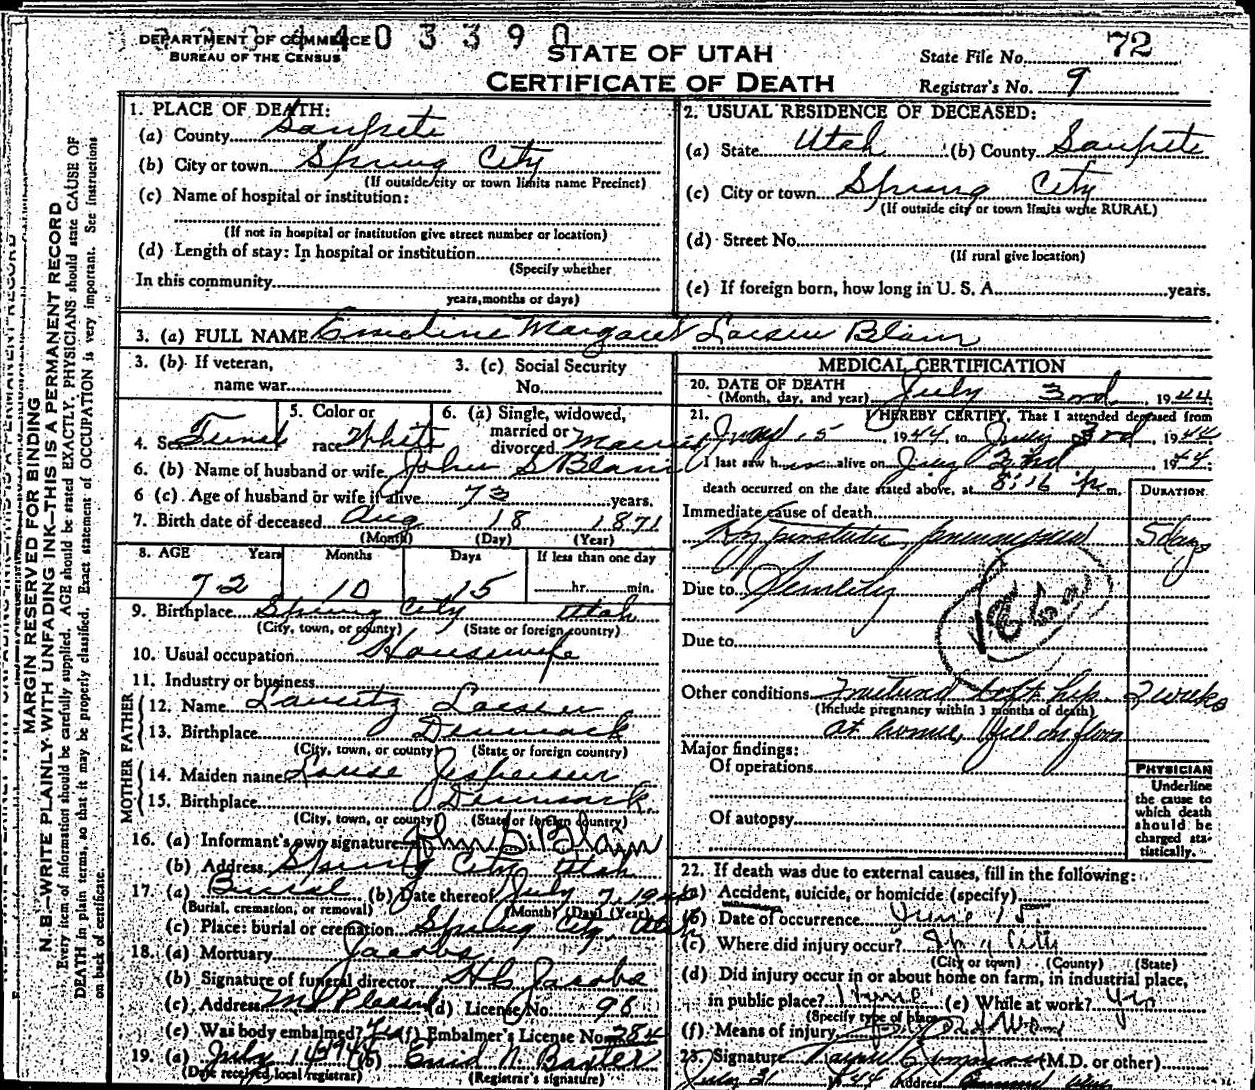 DEPARTMENT OF COMMERCE
BUREAU OF THE CENSUS
4403390
STATE OF UTAH
CERTIFICATE OF DEATH
State File No. 72
Registrar's No. 9
MARGIN RESERVED FOR BINDING
N. B.—WRITE PLAINLY WITH UNFADING INK—THIS IS A PERMANENT RECORD
Every item of information should be carefully supplied. AGE should be stated EXACTLY. PHYSICIANS should state CAUSE OF
DEATH in plain terms, so that it may be properly classified. Exact statement of OCCUPATION is very important. See instructions
on back of certificate.
1. PLACE OF DEATH:
(a) County Sanpete
(b) City or town Spring City
(If outside city or town limits name Precinct)
(c) Name of hospital or institution:
(If not in hospital or institution give street number or location)
(d) Length of stay: In hospital or institution
(Specify whether
In this community
years, months or days)
2. USUAL RESIDENCE OF DECEASED:
(a) State Utah (b) County Sanpete
(c) City or town Spring City
(If outside city or town limits write RURAL)
(d) Street No.
(If rural give location)
(e) If foreign born, how long in U. S. A. years.
3. (a) FULL NAME Emeline Margaret Larsen Blain
3. (b) If veteran,
name war
3. (c) Social Security
No.
4. Sex Female
5. Color or
race White
6. (a) Single, widowed,
married or
divorced Married
6. (b) Name of husband or wife John S Blain
6 (c) Age of husband or wife if alive 73 years.
7. Birth date of deceased Aug 18 1871
(Month) (Day) (Year)
8. AGE Years Months Days If less than one day
72 10 15 hr. min.
9. Birthplace Spring City Utah
(City, town, or county) (State or foreign country)
10. Usual occupation Housewife
11. Industry or business
FATHER
12. Name Lauritz Larsen
13. Birthplace Denmark
(City, town, or county) (State or foreign country)
MOTHER
14. Maiden name Jespersen
15. Birthplace Denmark
(City, town, or county) (State or foreign country)
16. (a) Informant's own signature John S. Blain
(b) Address Spring City Utah
17. (a) Burial (b) Date thereof July 7, 1944
(Burial, cremation, or removal) (Month) (Day) (Year)
(c) Place: burial or cremation Spring City, Utah
18. (a) Mortuary Jacobs
(b) Signature of funeral director Jacobs
(c) Address Mt Pleasant (d) License No. 98
(e) Was body embalmed? Yes (f) Embalmer's License No. 284
19. (a) July 14 1944 (b) Enid N. Baxter
(Date received local registrar) (Registrar's signature)
MEDICAL CERTIFICATION
20. DATE OF DEATH
(Month, day, and year) July 3rd, 1944.
21. I HEREBY CERTIFY, That I attended deceased from
15, 1944, to July 3rd, 1944
I last saw h alive on July 3rd, 1944.
death occurred on the date stated above, at 8:16 p m.
DURATION
Immediate cause of death
Hypostatic pneumonia 5 days
Due to Senility
186a
Due to
Other conditions Fractured left hip 2 weeks
(Include pregnancy within 3 months of death)
at home, fell on floor
Major findings:
Of operations
Of autopsy
PHYSICIAN
Underline
the cause to
which death
should be
charged sta-
tistically.
22. If death was due to external causes, fill in the following:
(a) Accident, suicide, or homicide (specify)
(b) Date of occurrence June 15
(c) Where did injury occur? Sp g City
(City or town) (County) (State)
(d) Did injury occur in or about home on farm, in industrial place,
in public place? Home (e) While at work? Yes
(Specify type of place)
(f) Means of injury
23. Signature (M.D. or other)
July 31 1944 Address